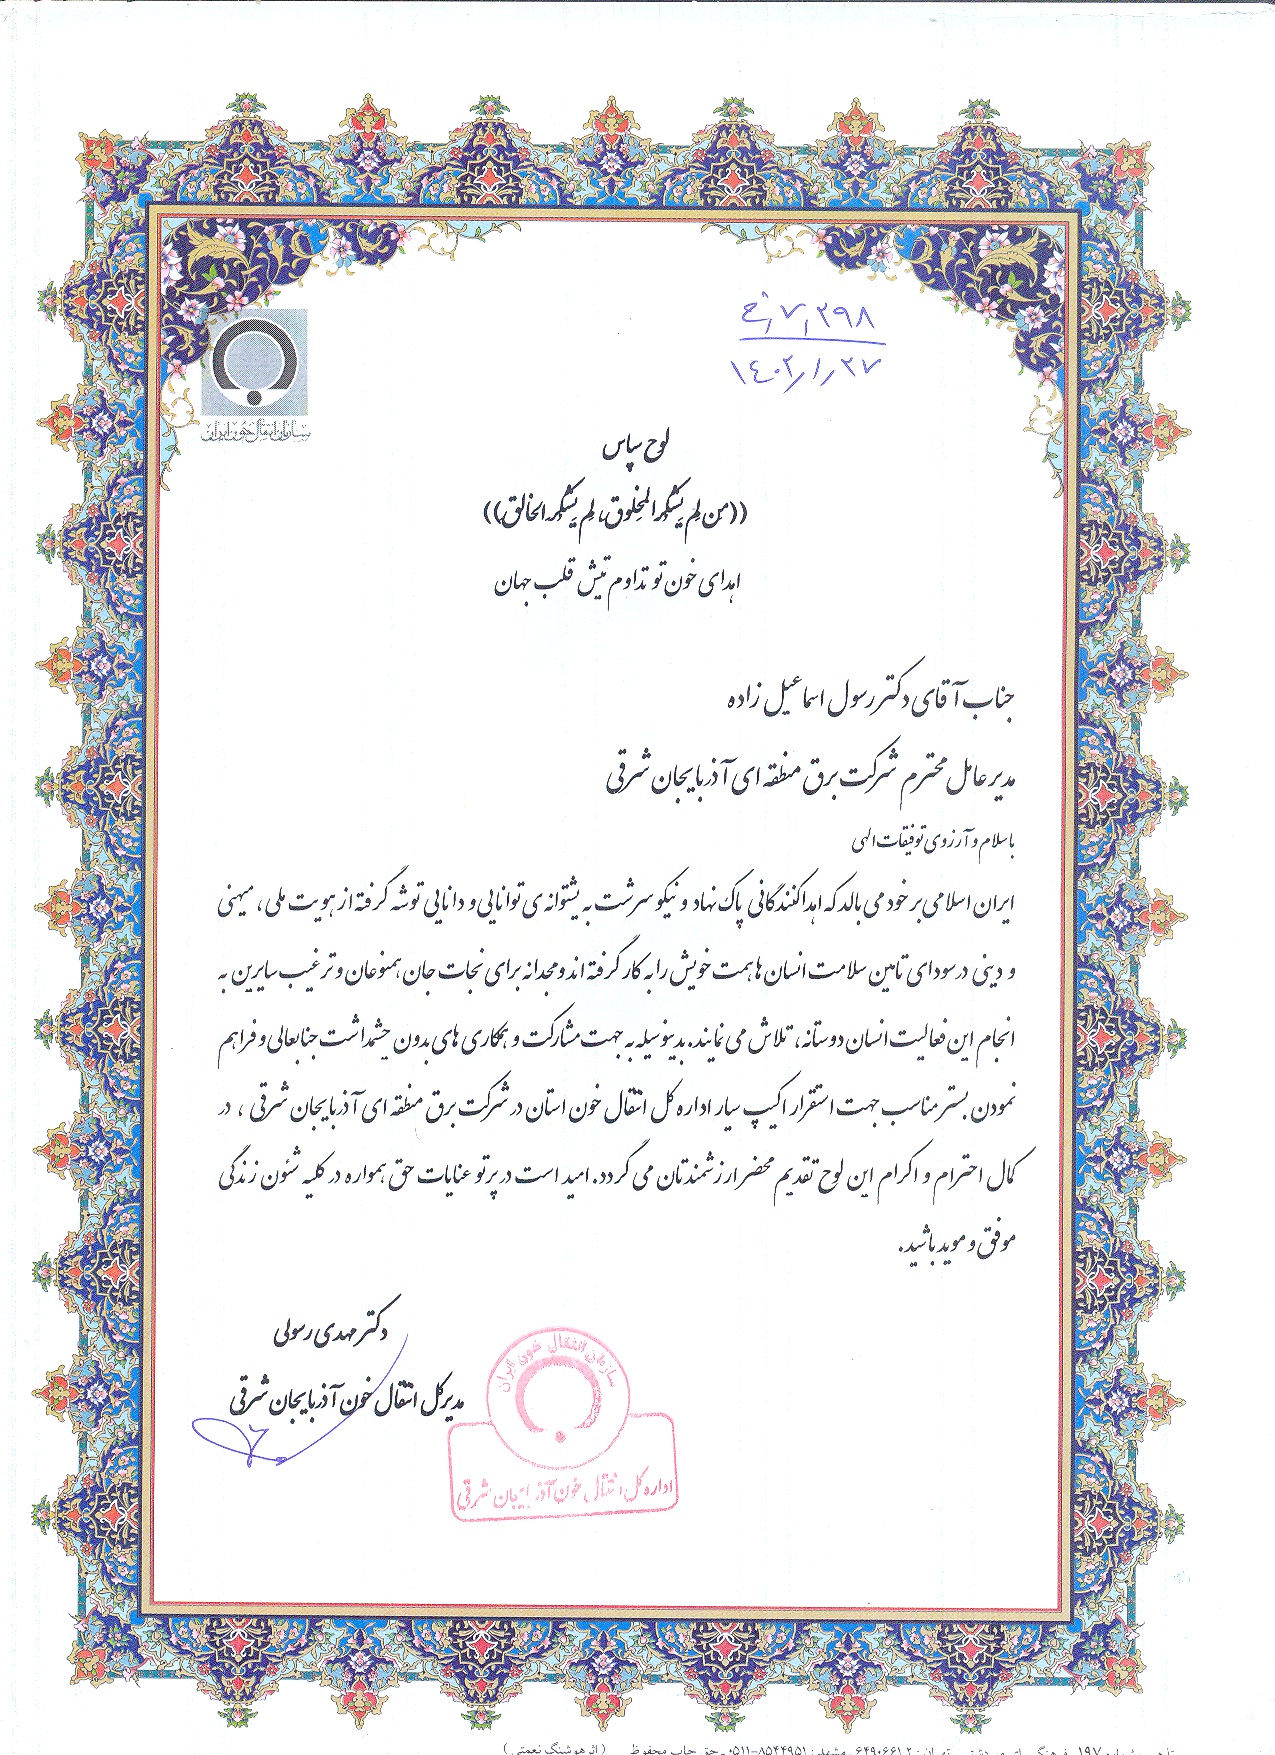 ۲۹۸/۷/خ
۱٤۰۲/۱/۲۷
سازمان انتقال خون ایران
لوح سپاس
((من لم یشکر المخلوق، لم یشکر الخالق))
اهدای خون تو تداوم تپش قلب جهان
جناب آقای دکتر رسول اسماعیل زاده
مدیر عامل محترم شرکت برق منطقه ای آذربایجان شرقی
با سلام و آرزوی توفیقات الهی
ایران اسلامی بر خود می بالد که اهداکنندگانی پاک نهاد و نیکو سرشت به پشتوانه ی توانایی و دانایی توشه گرفته از هویت ملی، میهنی
و دینی در سودای تامین سلامت انسان ها همت خویش را به کار گرفته اند و مجدانه برای نجات جان همنوعان و ترغیب سایرین به
انجام این فعالیت انسان دوستانه، تلاش می نمایند. بدینوسیله به جهت مشارکت و همکاری های بدون چشمداشت جنابعالی و فراهم
نمودن بستر مناسب جهت استقرار اکیپ سیار اداره کل انتقال خون استان در شرکت برق منطقه ای آذربایجان شرقی ، در
کمال احترام و اکرام این لوح تقدیم محضر ارزشمندتان می گردد. امید است در پرتو عنایات حق همواره در کلیه شئون زندگی
موفق و موید باشید.
دکتر مهدی رسولی
مدیرکل انتقال خون آذربایجان شرقی
سازمان انتقال خون ایران
اداره کل انتقال خون آذربایجان شرقی
۶۴۹۰۶۶۱۲ مشهد: ۸۵۴۴۹۵۱-۰۵۱۱ حق چاپ محفوظ (اثر هوشنگ نعمتی)